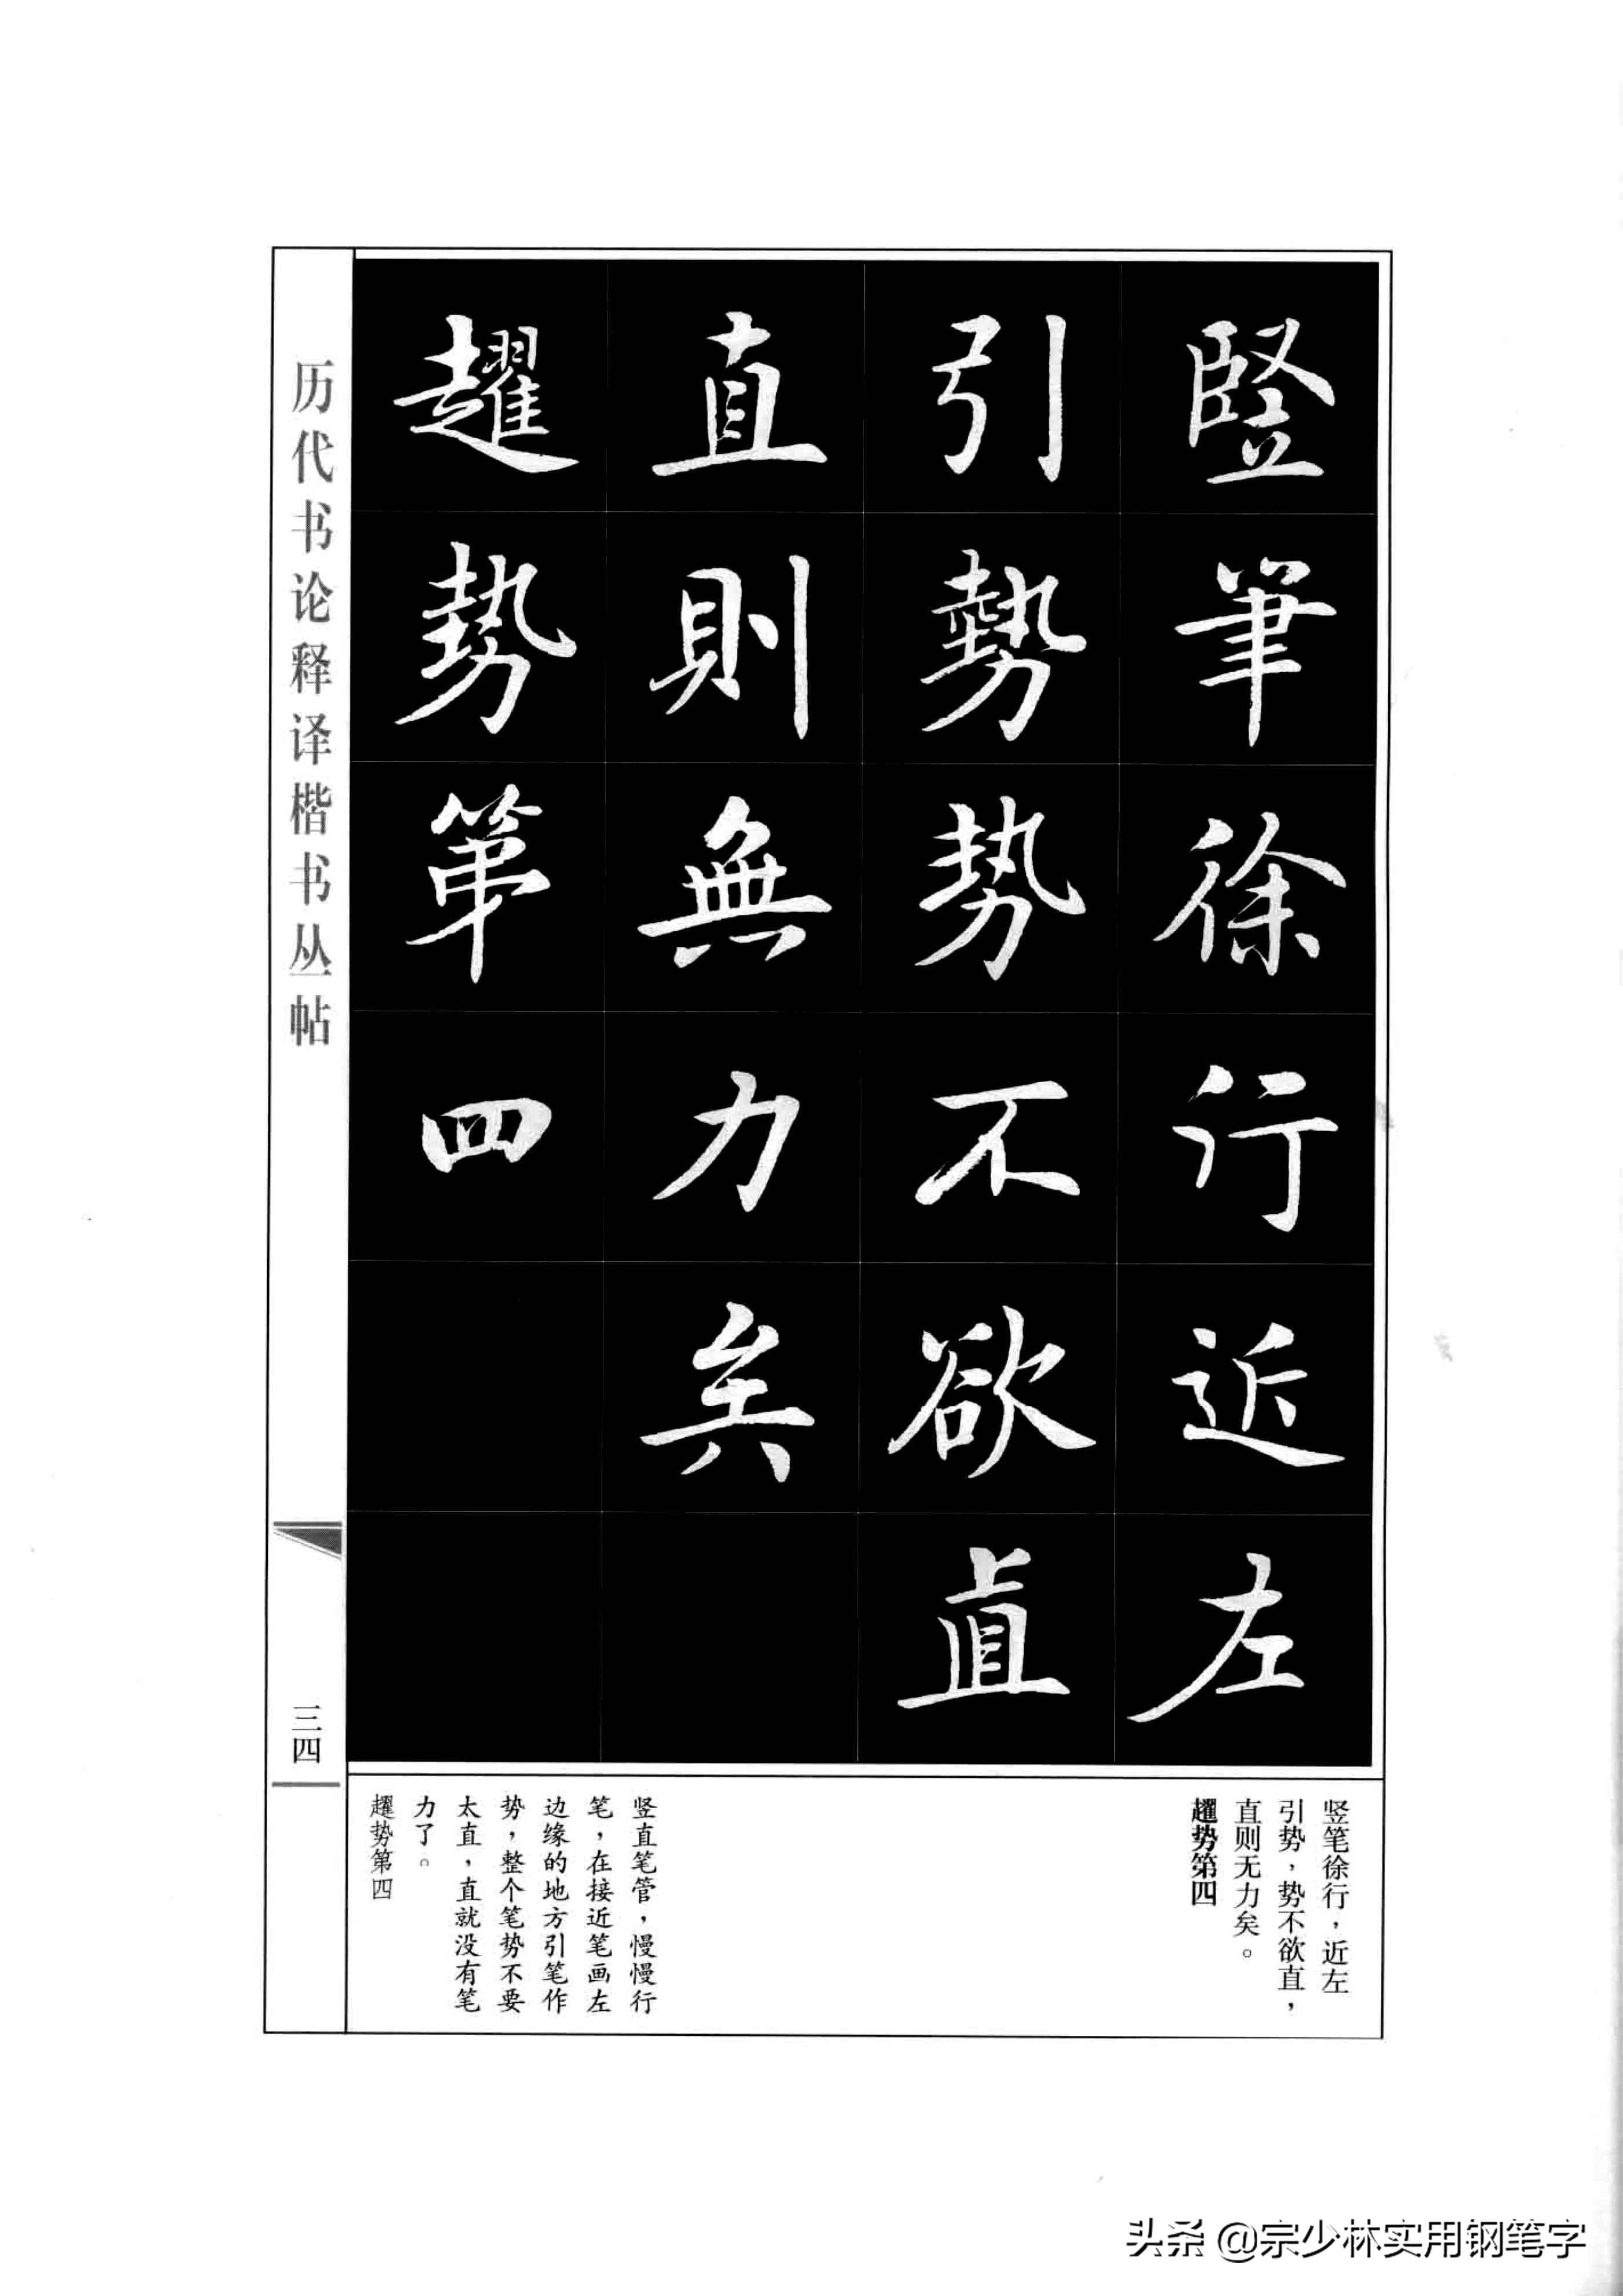 竪筆徐行近左
引勢势不欲直
直則無力矣
趯势第四
竖笔徐行，近左
引势，势不欲直，
直则无力矣。
趯势第四
竖直笔管，慢慢行
笔，在接近笔画左
边缘的地方引笔作
势，整个笔势不要
太直，直就没有笔
力了。
趯势第四
历代书论释译楷书丛帖
三四
头条 @宗少林实用钢笔字